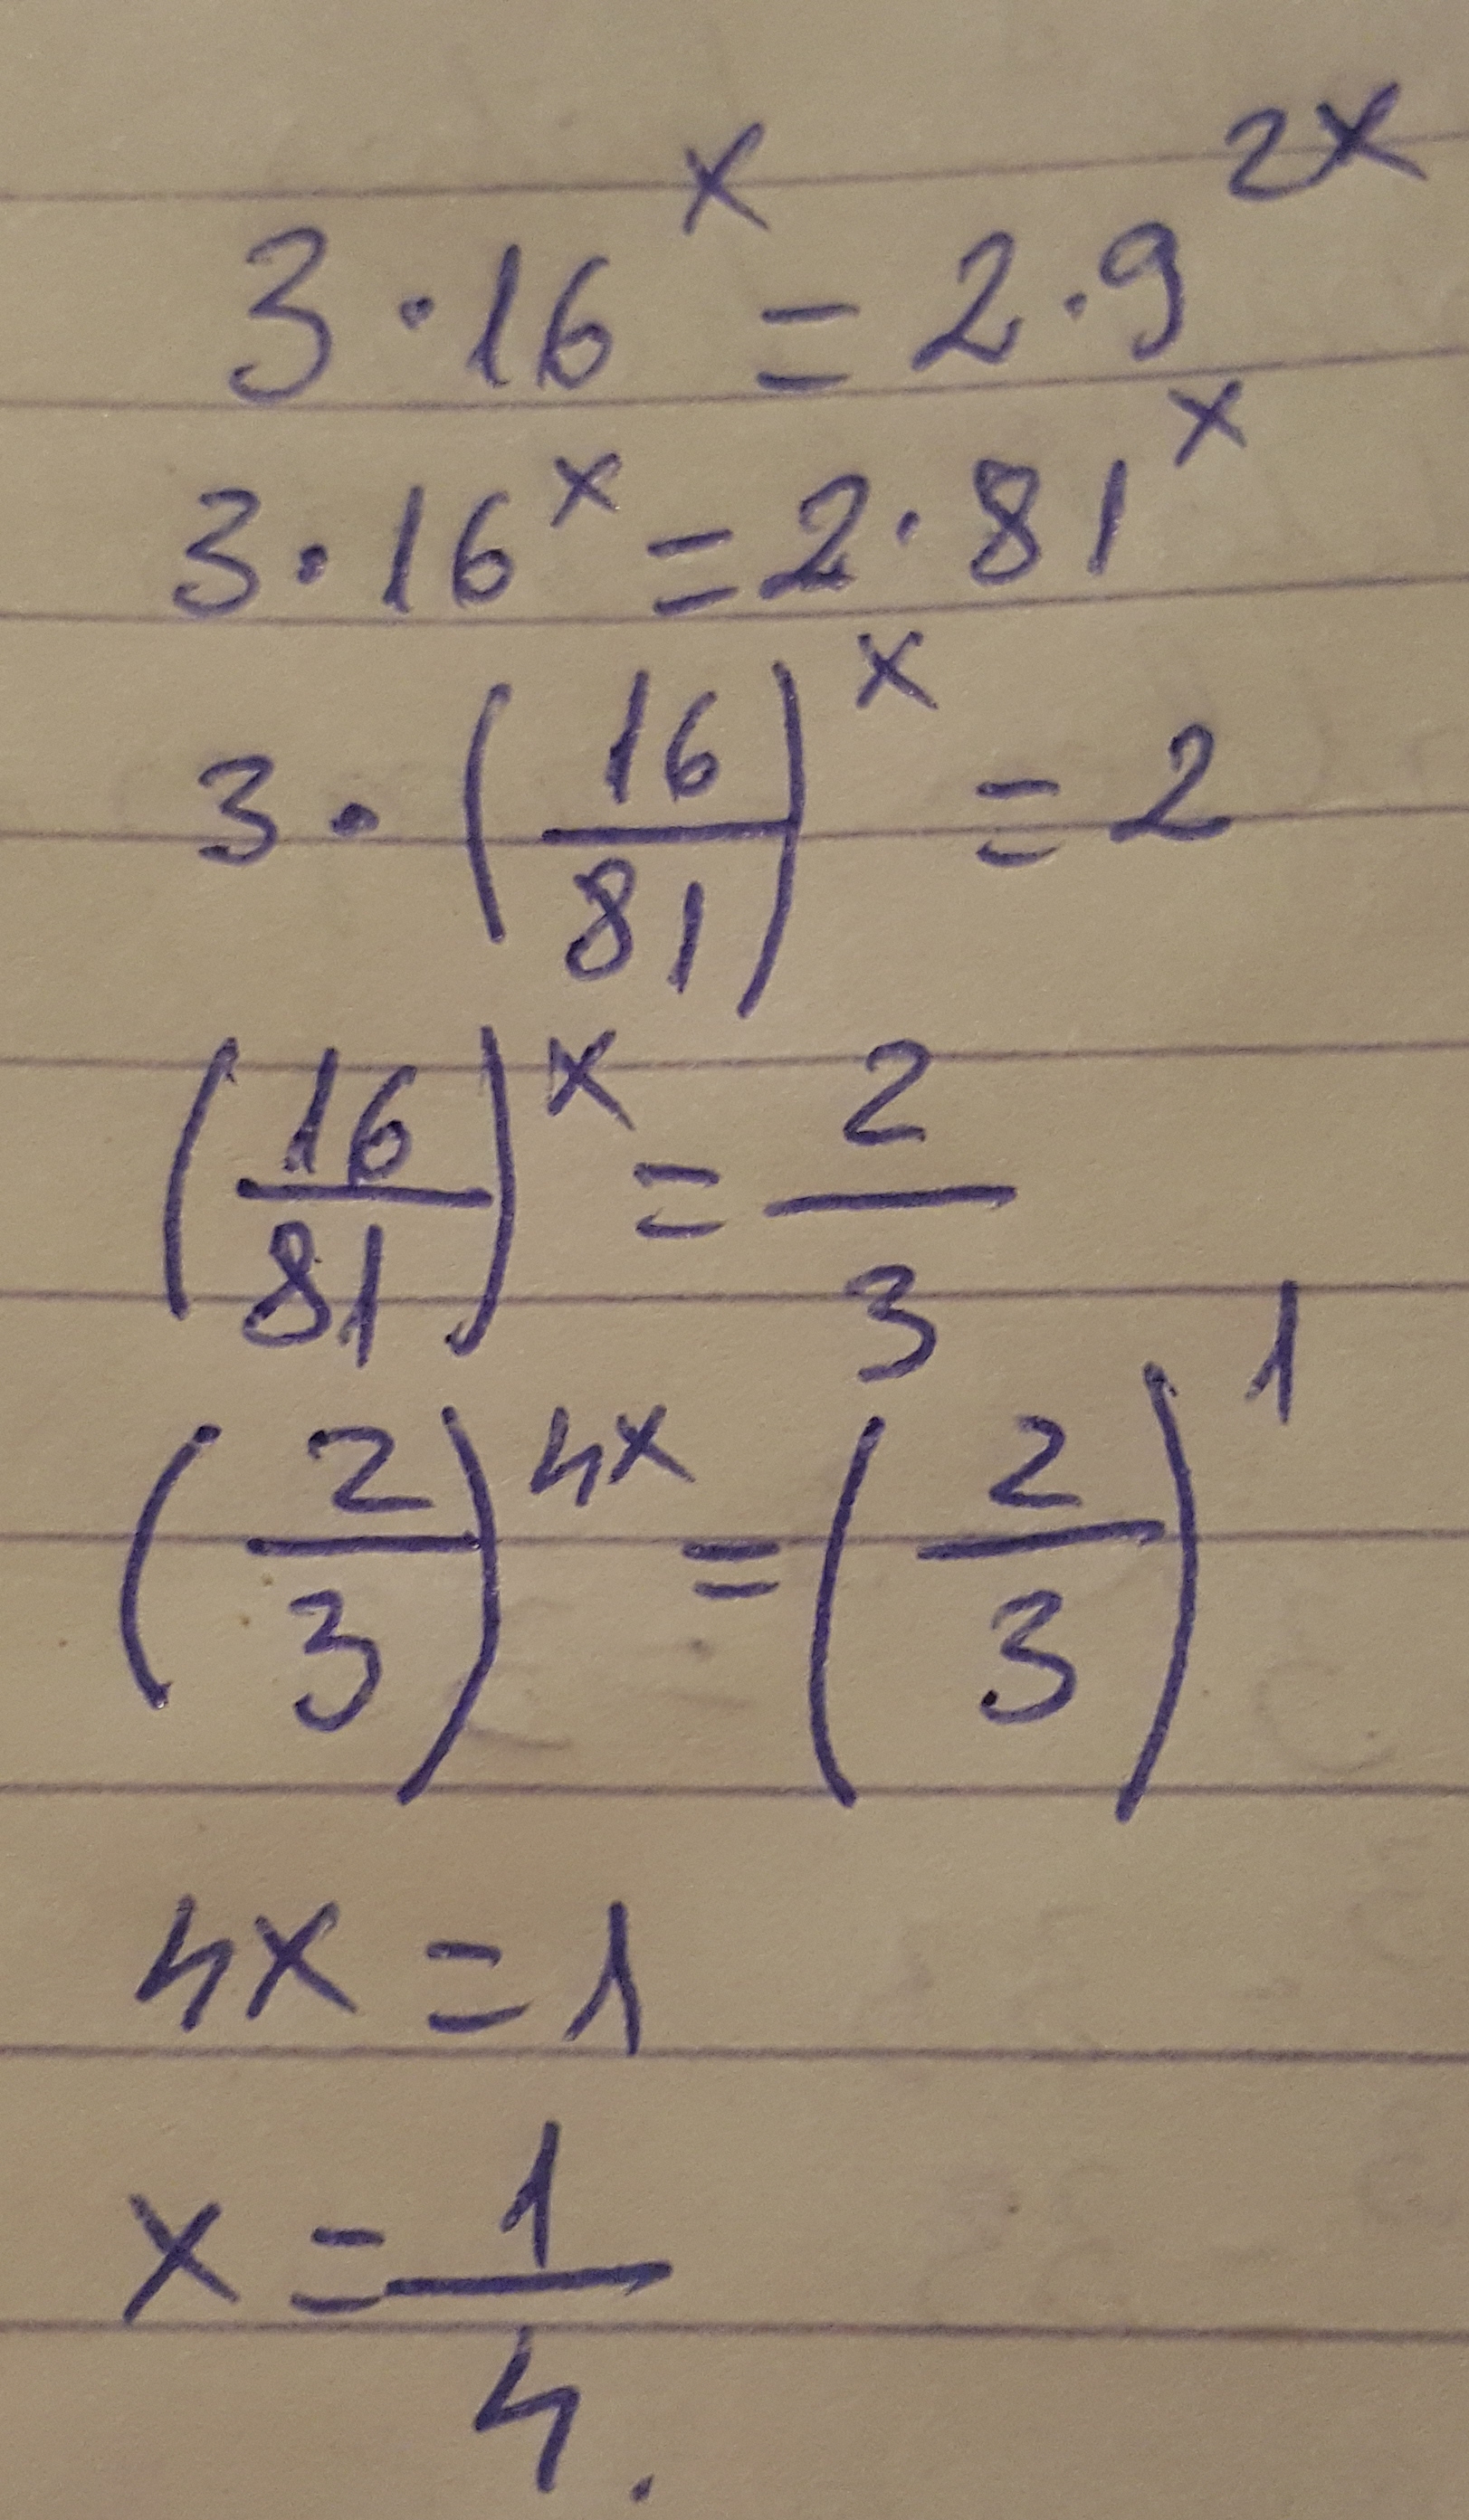 3 · 16^x = 2 · 9^2x
3 · 16^x = 2 · 81^x
3 · (16/81)^x = 2
(16/81)^x = 2/3
(2/3)^4x = (2/3)^1
4x = 1
x = 1/4.